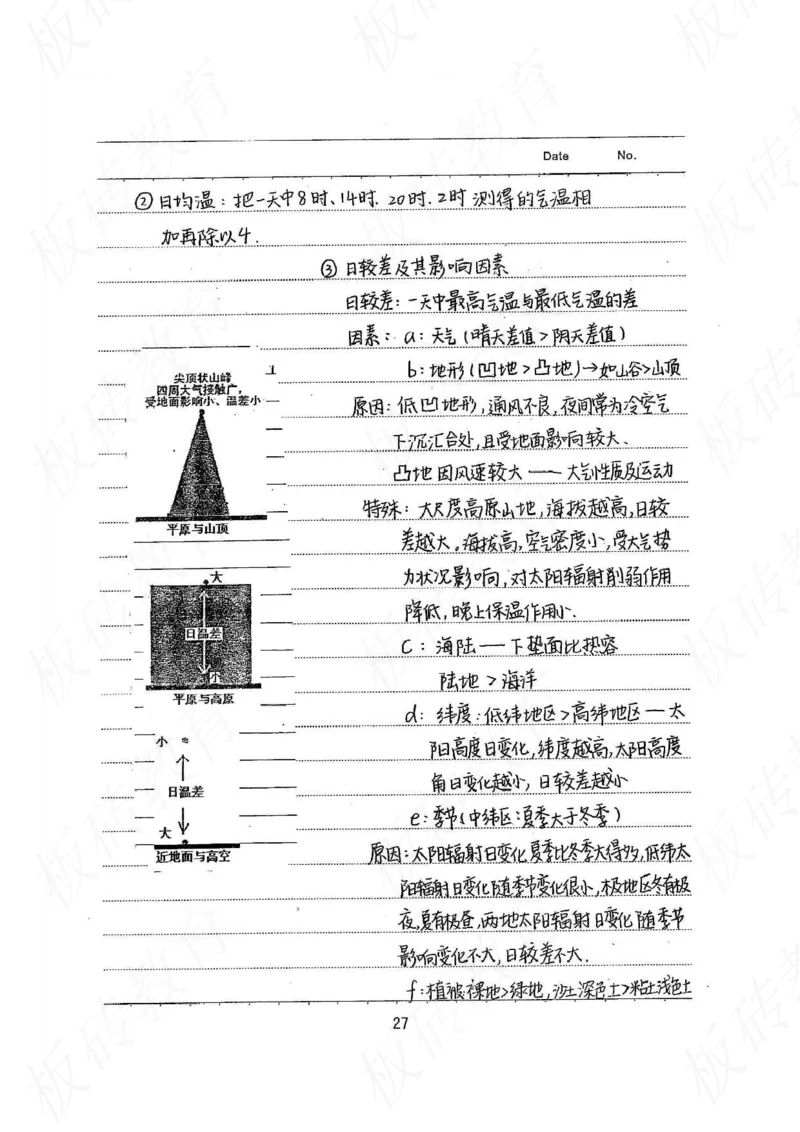 Date No.
② 日均温：把一天中8时、14时、20时、2时 测得的气温相
加再除以4.
③ 日较差及其影响因素
日较差：一天中最高气温与最低气温的差
因素：a：天气（晴天差值>阴天差值）
b：地形（凹地>凸地）→如山谷>山顶
原因：低凹地形，通风不良，夜间常为冷空气
下沉汇合处，且受地面影响较大、
凸地因风速较大——大气性质及运动
特殊：大尺度高原山地，海拔越高，日较
差越大。海拔高，空气密度小，受大气势
力状况影响，对太阳辐射削弱作用
降低，晚上保温作用小.
C：海陆——下垫面比热容
陆地 > 海洋
d：纬度：低纬地区>高纬地区—太
阳高度日变化，纬度越高，太阳高度
角日变化越小，日较差越小
e：季节（中纬区：夏季大于冬季）
原因：太阳辐射日变化夏季比冬季大得多，低纬太
阳辐射日变化随季节变化很小，极地区冬有极
夜，夏有极昼，两地太阳辐射日变化随季节
影响变化不大，日较差不大.
f：植被：裸地>绿地，沙土深色土>粘土浅色土
尖顶状山峰
四周大气接触广，
受地面影响小、温差小
平原与山顶
大
日温差
小
平原与高原
小
日温差
大
近地面与高空
27
板砖教育